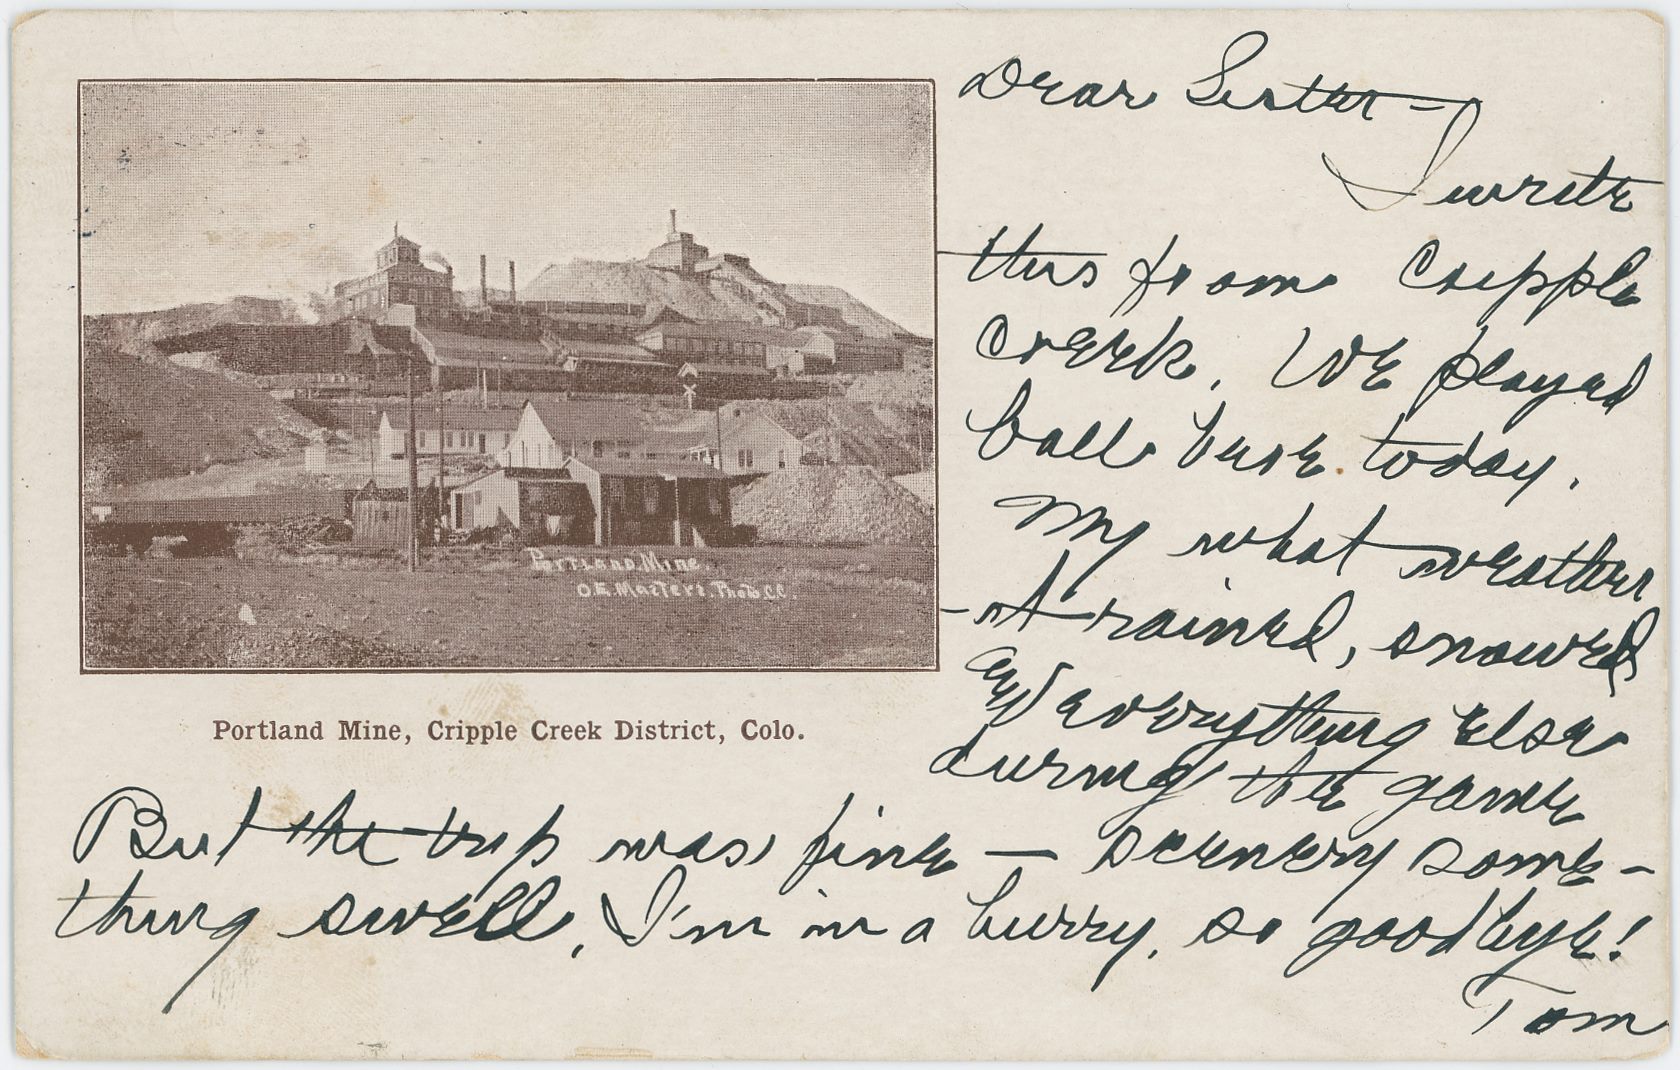 Dear Sister —
I write
this from Cripple
Creek. We played
ball here today.
My what weather
it rained, snowed
and everything else
during the game
Portland Mine.
O.E. Masters. Photo. C.C.
Portland Mine, Cripple Creek District, Colo.
But the trip was fine — scenery some-
thing swell. I'm in a hurry, so goodbye!
Tom